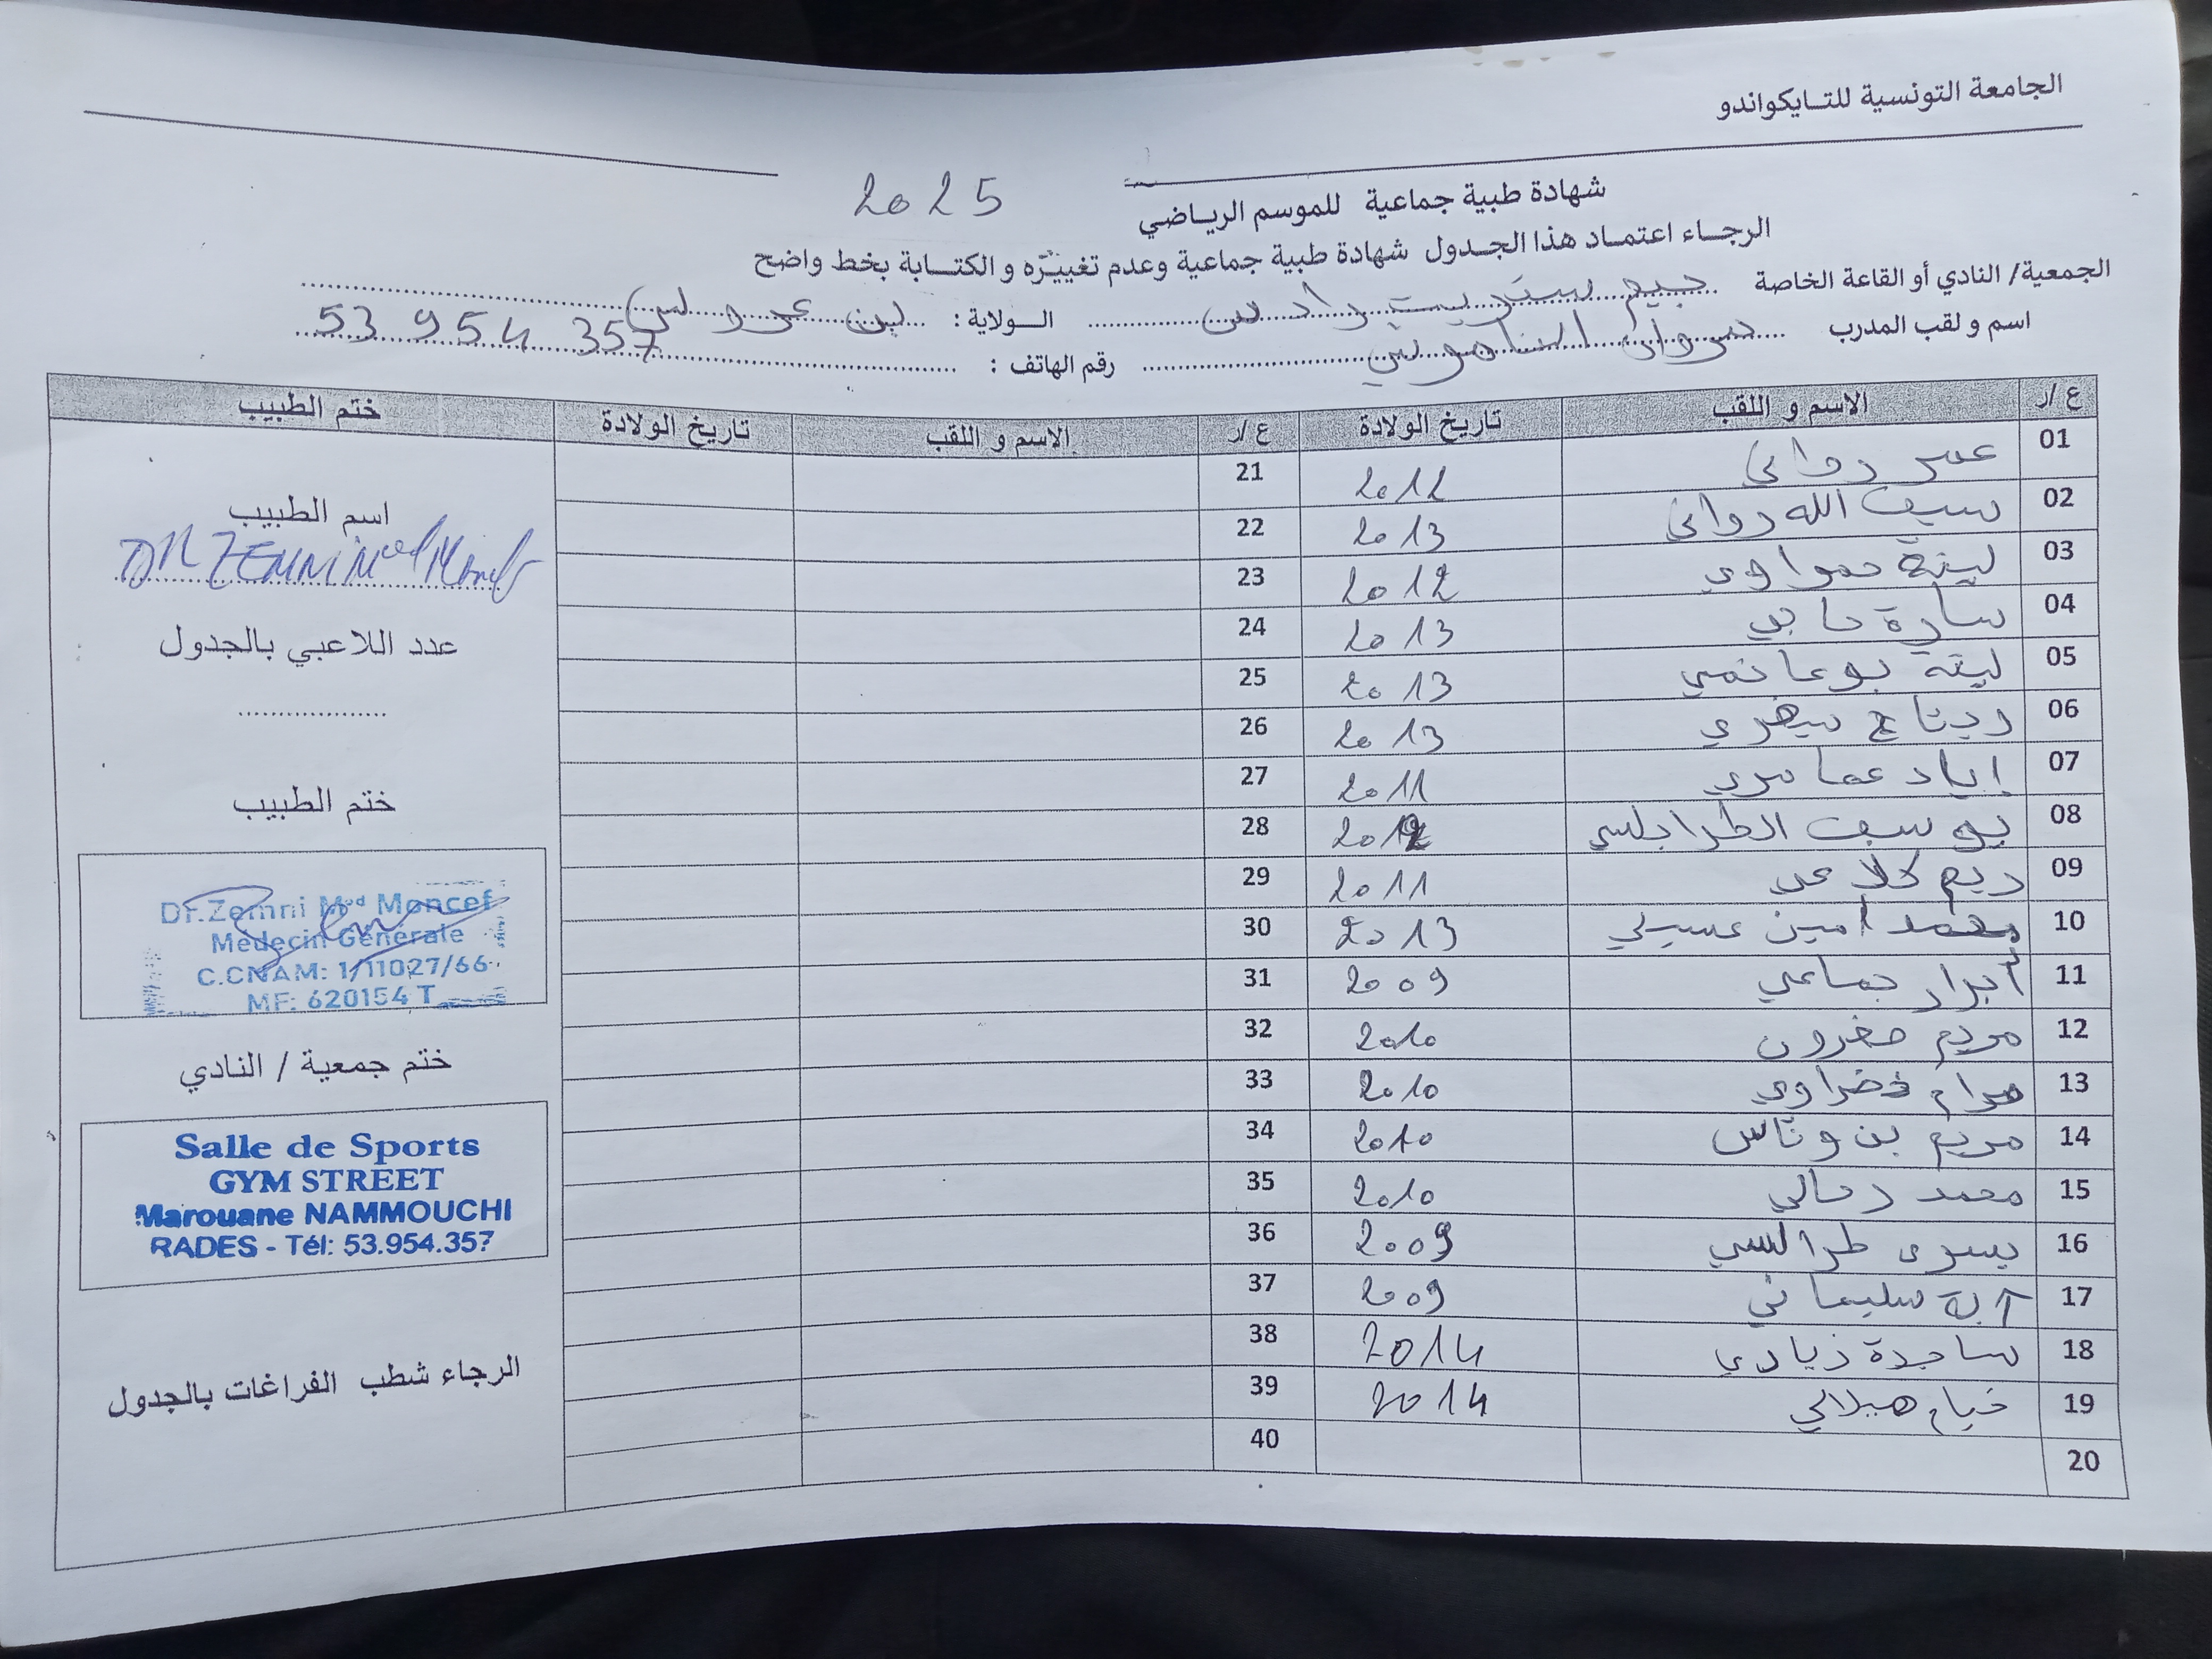 الجامعة التونسية للتايكواندو
شهادة طبية جماعية للموسم الرياضي 2025
الرجاء اعتماد هذا الجدول شهادة طبية جماعية وعدم تغييره و الكتابة بخط واضح
الجمعية/ النادي أو القاعة الخاصة جيم ستريت رادس الولاية : بن عروس
اسم و لقب المدرب مروان النموشي رقم الهاتف : 53 954 357
ع /ر الاسم و اللقب تاريخ الولادة ع /ر الاسم و اللقب تاريخ الولادة ختم الطبيب
01 عمر رواني 2012 21
02 سيف الله رواني 2013 22
03 لينة حمراوي 2012 23
04 سارة حاجي 2013 24
05 لينة بوعانمي 2013 25
06 ريتاج 2013 26
07 إياد عمامري 2011 27
08 يوسف الطرابلسي 2012 28
09 ريم كلاعي 2011 29
10 محمد امين عسيلي 2013 30
11 أبرار جماعي 2009 31
12 مريم مقرون 2010 32
13 مرام خضراوي 2010 33
14 مريم بن وناس 2010 34
15 محمد رحالي 2010 35
16 يسرى طرابلسي 2009 36
17 آية سليماني 2009 37
18 ساجدة زيادي 2014 38
19 خيام هيلالي 2014 39
20 40
اسم الطبيب
DR ZEMNI Med Moncef
عدد اللاعبي بالجدول
ختم الطبيب
Dr.Zemni Med Moncef
Médecin Générale
C.CNAM: 1/11027/66
MF: 620154 T
ختم جمعية / النادي
Salle de Sports
GYM STREET
Marouane NAMMOUCHI
RADES - Tél: 53.954.357
الرجاء شطب الفراغات بالجدول